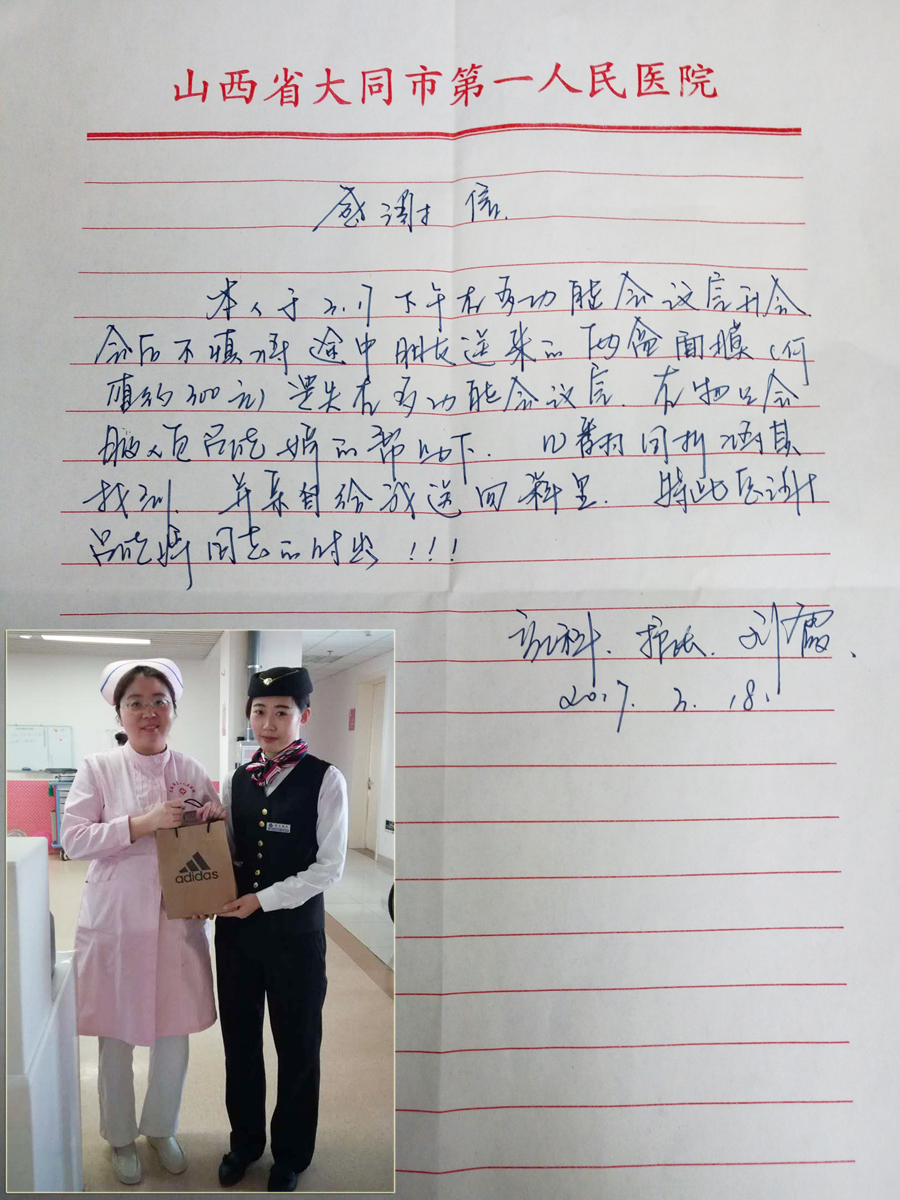 山西省大同市第一人民医院
感谢信.
本人于3.17下午在多功能会议室开会
会后不慎将途中朋友送来的两盒面膜(价
值约300元)遗失在多功能会议室.在物业会
服人员吕晓婷的帮助下.
找到.并亲自给我送回科里.特此感谢
吕晓婷同志的付出!!!
护士长.刘霞.
2017.3.18.
adidas